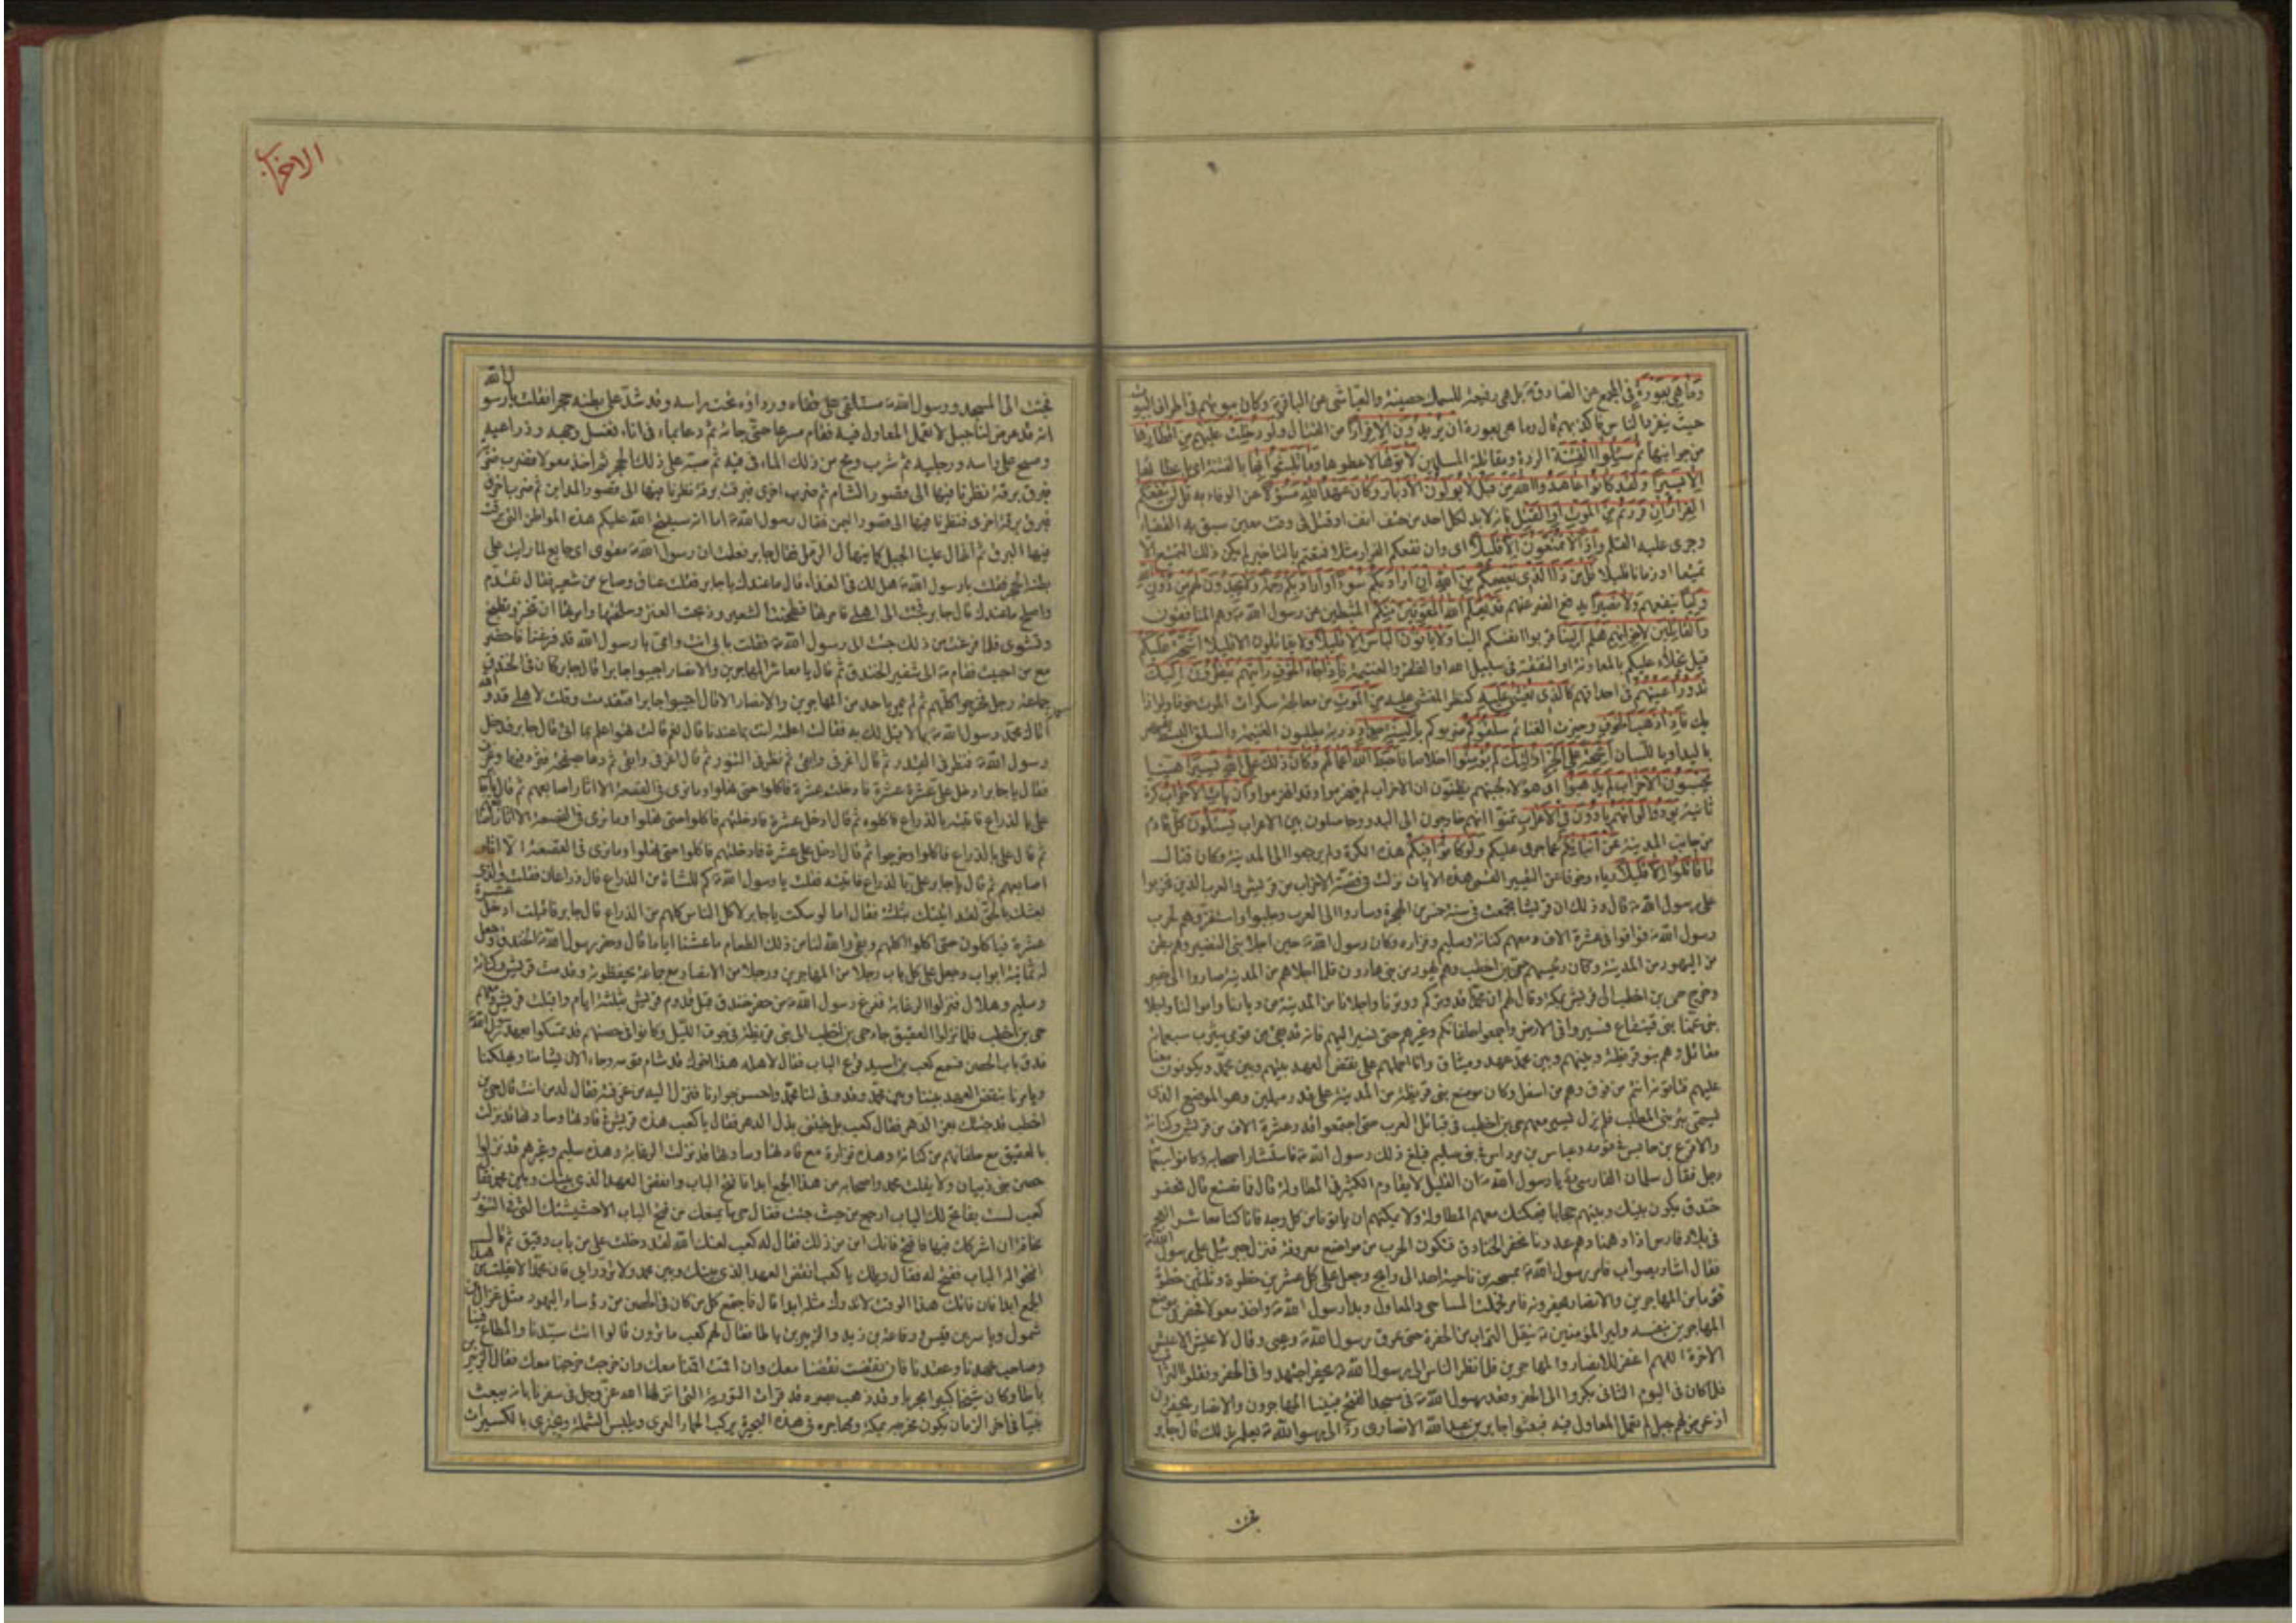 وَمَا هِيَ بِعَوْرَةٍ في المجمع عن الصادق ع بل هي رفيعة السمك حصينة والعياشي عن الباقر ع وكان بيوتهم في اطراف البيوت
حيث ينفرد الناس فاكذبهم قال وما هي بعورة ان يُرِيدُونَ اِلَّا فِرَارًا من القتال وَلَوْ دُخِلَتْ عَلَيْهِمْ مِنْ اَقْطَارِهَا
من جوانبها ثُمَّ سُئِلُوا الْفِتْنَةَ الردة ومقاتلة المسلمين لَاٰتَوْهَا لاعطوها وَمَا تَلَبَّثُوا بِهَا بالفتنة اي باعطائها
اِلَّا يَسِيرًا وَلَقَدْ كَانُوا عَاهَدُوا اللهَ مِنْ قَبْلُ لَا يُوَلُّونَ الْاَدْبَارَ وَكَانَ عَهْدُ اللهِ مَسْؤُلًا عن الوفاء به قُلْ لَنْ يَنْفَعَكُمُ
الْفِرَارُ اِنْ فَرَرْتُمْ مِنَ الْمَوْتِ اَوِ الْقَتْلِ فانه لابد لكل احد من حتف انف او قتل في وقت معين سبق به القضاء
وجرى عليه القلم وَاِذًا لَا تُمَتَّعُونَ اِلَّا قَلِيلًا اي وان نفعكم الفرار مثلا فمتعتم بالتاخير لم يكن ذلك التمتيع الا
تمتيعا او زمانا قليلا قُلْ مَنْ ذَا الَّذِي يَعْصِمُكُمْ مِنَ اللهِ اِنْ اَرَادَ بِكُمْ سُوءًا اَوْ اَرَادَ بِكُمْ رَحْمَةً وَلَا يَجِدُونَ لَهُمْ مِنْ دُونِ اللهِ
وَلِيًّا ينفعهم وَلَا نَصِيرًا يدفع الضر عنهم قَدْ يَعْلَمُ اللهُ الْمُعَوِّقِينَ مِنْكُمْ المثبطين عن رسول الله ص وهم المنافقون
وَالْقَائِلِينَ لِاِخْوَانِهِمْ هَلُمَّ اِلَيْنَا قربوا انفسكم الينا وَلَا يَاْتُونَ الْبَاْسَ اِلَّا قَلِيلًا ولا يقاتلون الا قليلا اَشِحَّةً عَلَيْكُمْ
قيل بخلاء عليكم بالمعاونة او النفقة في سبيل الله او الظفر والغنيمة فَاِذَا جَاءَ الْخَوْفُ رَاَيْتَهُمْ يَنْظُرُونَ اِلَيْكَ
تَدُورُ اَعْيُنُهُمْ في احداقهم كَالَّذِي يُغْشٰى عَلَيْهِ كنظر المغشي عليه مِنَ الْمَوْتِ من معالجة سكرات الموت خوفا ولواذا
بك فَاِذَا ذَهَبَ الْخَوْفُ وحيزت الغنائم سَلَقُوكُمْ ضربوكم بِاَلْسِنَةٍ حِدَادٍ ذربة يطلبون الغنيمة والسلق البسط بقهر
باليد او باللسان اَشِحَّةً عَلَى الْخَيْرِ اُولٰئِكَ لَمْ يُؤْمِنُوا اخلاصا فَاَحْبَطَ اللهُ اَعْمَالَهُمْ وَكَانَ ذٰلِكَ عَلَى اللهِ يَسِيرًا هينا
يَحْسَبُونَ الْاَحْزَابَ لَمْ يَذْهَبُوا اي هؤلاء لجبنهم يظنون ان الاحزاب لم ينهزموا وقد انهزموا وَاِنْ يَاْتِ الْاَحْزَابُ كرة
ثانية يَوَدُّوا لَوْ اَنَّهُمْ بَادُونَ فِي الْاَعْرَابِ تمنوا انهم خارجون الى البدو وحاصلون بين الاعراب يَسْئَلُونَ كل قادم
من جانب المدينة عَنْ اَنْبَائِكُمْ عما جرى عليكم وَلَوْ كَانُوا فِيكُمْ هذه الكرة ولم يرجعوا الى المدينة وكان قتال
مَا قَاتَلُوا اِلَّا قَلِيلًا رياء وخوفا عن التعيير القمي هذه الايات نزلت في قصة الاحزاب من قريش والعرب الذين تحزبوا
على رسول الله ص قال وذلك ان قريشا تجمعت في سنة خمس من الهجرة وساروا الى العرب وجلبوا واستفزوهم لحرب
رسول الله ص فوافوا في عشرة الاف ومعهم كنانة وسليم وفزاره وكان رسول الله ص حين اجلى بني النضير وهم بطن
من اليهود من المدينة وكان رئيسهم حي بن اخطب وهم يهود من بني هارون فلما اجلاهم من المدينة صاروا الى خيبر
وخرج حي بن اخطب الى قريش بمكة وقال لهم ان محمدا قد وتركم ووترنا واجلانا من المدينة من ديارنا واموالنا واجلا
بني عمنا بني قينقاع فسيروا في الارض واجمعوا حلفائكم وغيرهم حتى نسير اليهم فانه قد بقي من قومي بيثرب سبعمائة
مقاتل وهم بنو قريظة وبينهم وبين محمد عهد وميثاق وانا احملهم على نقض العهد بينهم وبين محمد ويكونون معنا
عليهم فتاتونه انتم من فوق وهم من اسفل وكان موضع بني قريظة من المدينة على قدر ميلين وهو الموضع الذي
يسمى بئر بني المطلب فلم يزل يسير معهم حي بن اخطب في قبائل العرب حتى اجتمعوا قدر عشرة الاف من قريش وكنانة
والاقرع بن حابس في قومه وعباس بن مرداس في بني سليم فبلغ ذلك رسول الله ص فاستشار اصحابه وكانوا سبعمائة
رجل فقال سلمان الفارسي ره يا رسول الله ص ان القليل لا يقاوم الكثير في المطاولة قال فما نصنع قال نحفر
خندق يكون بينك وبينهم حجابا فيمكنك منعهم المطاولة ولا يمكنهم ان ياتونا من كل وجه فانا كنا معاشر العجم
في بلاد فارس اذا دهمنا دهم عدونا نحفر الخنادق فتكون الحرب من مواضع معروفة فنزل جبرئيل على رسول الله ص
فقال اشار بصواب فامر رسول الله ص بمسحه من ناحية احد الى راتج وجعل على كل عشرين خطوة وثلثين خطوة
قوما من المهاجرين والانصار يحفرونه فامر فحملت المساحي والمعاول وبدا رسول الله ص واخذ معولا فحفر في موضع
المهاجرين بنفسه وامير المؤمنين ع ينقل التراب من الحفرة حتى عرق رسول الله ص وعيى وقال لا عيش الا عيش
الاخرة اللهم اغفر للانصار والمهاجرين فلما نظر الناس الى رسول الله ص يحفر اجتهدوا في الحفر ونقلوا التراب
فلما كان في اليوم الثاني بكروا الى الحفر وقعد رسول الله ص في مسجد الفتح فبينا المهاجرون والانصار يحفرون
اذ عرض لهم جبل لم تعمل المعاول فيه فبعثوا جابر بن عبد الله الانصاري ره الى رسول الله ص يعلمه بذلك قال جابر
فجئت
الاحزاب
فجئت الى المسجد ورسول الله ص مستلقى على قفاه ورداؤه تحت راسه وقد شد على بطنه حجرا فقلت يا رسول الله
انه قد عرض لنا جبل لا تعمل المعاول فيه فقام مسرعا حتى جائه ثم دعا بماء في اناء فغسل وجهه وذراعيه
ومسح على راسه ورجليه ثم شرب ومج من ذلك الماء في فيه ثم صبه على ذلك الحجر ثم اخذ معولا فضرب ضربة
فبرق برقة نظرنا فيها الى قصور الشام ثم ضرب اخرى فبرقت برقة نظرنا فيها الى قصور المداين ثم ضرب اخرى
فبرق برقة اخرى فنظرنا فيها الى قصور اليمن فقال رسول الله ص اما انه سيفتح الله عليكم هذه المواطن التي برقت
فيها البرق ثم انهال علينا الجبل كما ينهال الرمل فقال جابر فعلمت ان رسول الله ص مقوى اي جايع لما رايت على
بطنه الحجر فقلت يا رسول الله ص هل لك في الغداء قال ما عندك يا جابر فقلت عناق وصاع من شعير فقال تقدم
واصلح ما عندك قال جابر فجئت الى اهلي فامرتها فطحنت الشعير وذبحت العنز وسلختها وامرتها ان تخبز وتطبخ
وتشوى فلما فرغت من ذلك جئت الى رسول الله ص فقلت بابي انت وامي يا رسول الله قد فرغنا فاحضر
مع من احببت فقام ص الى شفير الخندق ثم قال يا معاشر المهاجرين والانصار اجيبوا جابرا قال جابر كان في الخندق
سبعمائة رجل فخرجوا كلهم ثم لم يمر باحد من المهاجرين والانصار الا قال اجيبوا جابرا فتقدمت وقلت لاهلي قد والله
اتاك محمد رسول الله ص بما لا قبل لك به فقالت اعلمته انت بما عندنا قال نعم قالت هو اعلم بما اتى قال جابر فدخل
رسول الله ص فنظر في القدر ثم قال اغرفى وابقى ثم نظر في التنور ثم قال اخرجى وابقى ثم دعا بصحفة فثرد فيها وغرف
فقال يا جابر ادخل على عشرة عشرة فادخلت عشرة فاكلوا حتى نهلوا وما نرى في القصعة الا اثار اصابعهم ثم قال يا جابر
على بالذراع فاتيته بالذراع فاكلوه ثم قال ادخل عشرة فادخلتهم فاكلوا حتى نهلوا وما نرى في القصعة الا اثار اصابعهم
ثم قال على بالذراع فاكلوا وخرجوا ثم قال ادخل على عشرة فادخلتهم فاكلوا حتى نهلوا وما نرى في القصعة الا اثار
اصابعهم ثم قال يا جابر على بالذراع فاتيته فقلت يا رسول الله ص كم للشاة من الذراع قال ذراعان فقلت والذي
بعثك بالحق لقد اتيتك بثلثة فقال اما لو سكت يا جابر لاكل الناس كلهم من الذراع قال جابر فاقبلت ادخل عشرة
عشرة فياكلون حتى اكلوا كلهم وبقى والله لنا من ذلك الطعام ما عشنا اياما قال وحفر رسول الله ص الخندق وجعل
له ثمانية ابواب وجعل على كل باب رجلا من المهاجرين ورجلا من الانصار مع جماعة يحفظونه وقدمت قريش وكنانة
وسليم وهلال فنزلوا الرغابة ففرغ رسول الله ص من حفر خندق قبل قدوم قريش بثلثة ايام واقبلت قريش ومعهم
حي بن اخطب فلما نزلوا العقيق جاء حي بن اخطب الى بني قريظة في جوف الليل وكانوا في حصنهم قد تمسكوا بعهد رسول الله
فدق باب الحصن فسمع كعب بن اسيد قرع الباب فقال لاهله هذا اخوك قد شام قومه وجاء الان يشامنا ويهلكنا
ويامرنا بنقض العهد بيننا وبين محمد وقد وفى لنا محمد واحسن جوارنا فنزل اليه من غرفته فقال له من انت قال حي بن
اخطب قد جئتك بعز الدهر فقال كعب بل جئتني بذل الدهر فقال يا كعب هذه قريش في قادتها وسادتها قد نزلت
بالعقيق مع حلفائهم من كنانة وهذه فزارة مع قادتها وسادتها قد نزلت الرغابة وهذه سليم وغيرهم قد نزلوا
حصن بني ذبيان ولا يفلت محمد واصحابه من هذا الجمع ابدا فافتح الباب وانقض العهد الذي بينك وبين محمد فقال
كعب لست بفاتح لك الباب ارجع من حيث جئت فقال حي ما يمنعك من فتح الباب الا حشيشتك التي في التنور
تخاف ان اشركك فيها فافتح فانك امن من ذلك فقال له كعب لعنك الله لقد دخلت على من باب دقيق ثم قال
افتحوا له الباب ففتح له فقال ويلك يا كعب انقض العهد الذي بينك وبين محمد ولا ترد رايي فان محمدا لا يفلت من هذا
الجمع ابدا فان فاتك هذا الوقت لا تدرك مثله ابدا قال فاجتمع كل من كان في الحصن من رؤساء اليهود مثل غزال بن
شمول وياسر بن قيس ورفاعة بن زيد والزبير بن باطا فقال لهم كعب ما ترون قالوا انت سيدنا والمطاع فينا
وصاحب عهدنا وعقدنا فان نقضت نقضنا معك وان اقمت اقمنا معك وان خرجت خرجنا معك فقال الزبير بن
باطا وكان شيخا كبيرا مجربا وقد ذهب بصره قد قرات التورية التي انزلها الله عز وجل في سفرنا بانه يبعث
نبيا في اخر الزمان يكون مخرجه بمكة ومهاجره في هذه البحيرة يركب الحمار العرى ويلبس الشملة ويجتزى بالكسيرات